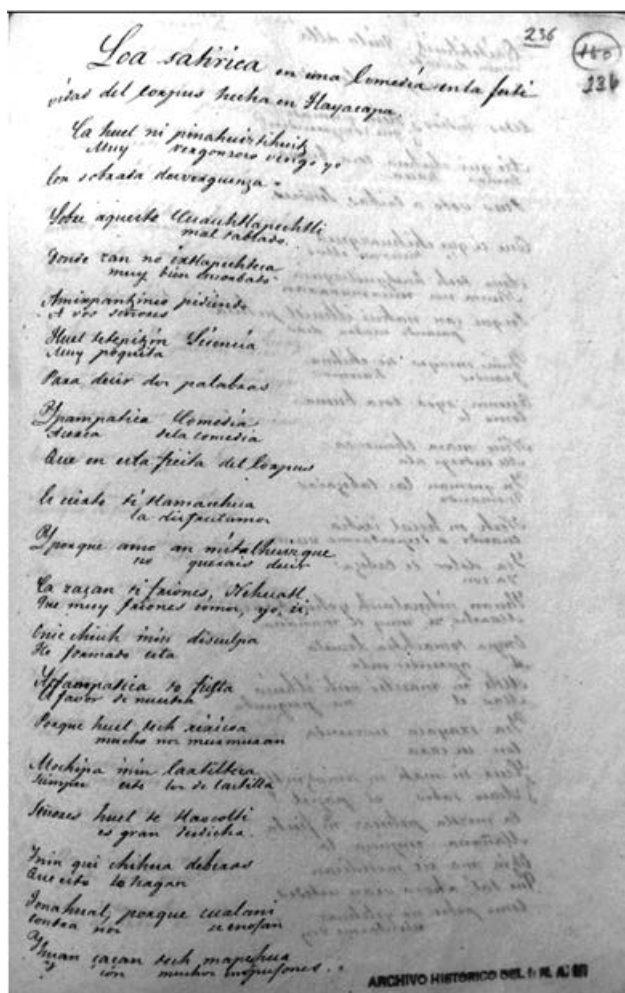 236
180
236
Loa satirica en una Comedia en la festi
vidad del Corpus hecha en Tlayacapa
Ca huel ni pinahuiztihuitz
Muy vergonzoso vengo yo
Con sobrada desverguenza.
Sobre aqueste Cuauhtlapechtli
mal tablado.
Donde zan no ixtlapechtica
muy bien encorbato
Amixpantzinco pidiendo
A vos señores
Huel tetepitzin Licencia
Muy poquita
Para decir dos palabras
Ypampatica Comedia
Acerca dela comedia
Que en esta fiesta del Corpus
le cierto ti tlamanhua
la disfrutamos
Y porque amo an mitalhuizque
no querais decir
Ca zazan ti friones, Nehuatl
Que muy friones somos, yo, si,
Onic chiuh inin disculpa
He formado esta
Ypampatica to fiesta
A favor de nuestra
Porque huel tech xixicoa
mucho nos murmuran
Mochipa inin Caxtilteca
Siempre esto los de Castilla
Señores huel te tlaocolti
es gran desdicha.
Inin qui chihua deberas
Que esto lo hagan
Tonahuac, porque cualani
Contra nos se enojan
Yhuan zazan tech mapehua
Y con muchos empujones.
ARCHIVO HISTORICO DEL I. N. A. H